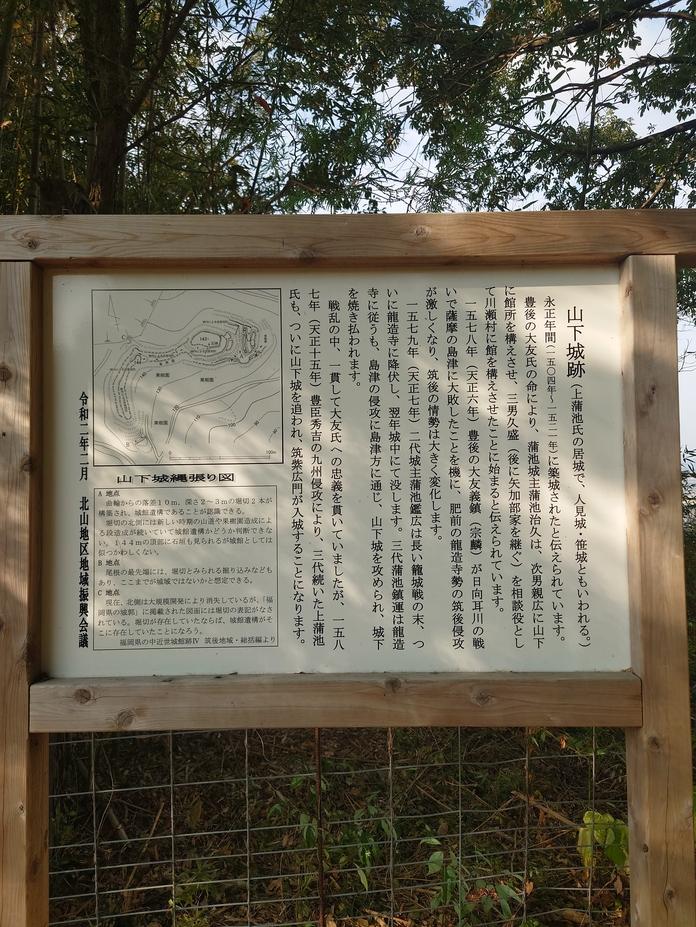 山下城跡（上蒲池氏の居城で、人見城・笹城ともいわれる。）
永正年間（一五〇四年～一五二一年）に築城されたと伝えられています。
豊後の大友氏の命により、蒲池城主蒲池治久は、次男親広に山下
に館所を構えさせ、三男久盛（後に矢加部家を継ぐ）を相談役とし
て川瀬村に館を構えさせたことに始まると伝えられています。
一五七八年（天正六年）豊後の大友義鎮（宗麟）が日向耳川の戦
いで薩摩の島津に大敗したことを機に、肥前の龍造寺勢の筑後侵攻
が激しくなり、筑後の情勢は大きく変化します。
一五七九年（天正七年）二代城主蒲池鑑広は長い籠城戦の末、つ
いに龍造寺に降伏し、翌年城中にて没します。三代蒲池鎮運は龍造
寺に従うも、島津の侵攻に島津方に通じ、山下城を攻められ、城下
を焼き払われます。
戦乱の中、一貫して大友氏への忠義を貫いていましたが、一五八
七年（天正十五年）豊臣秀吉の九州侵攻により、三代続いた上蒲池
氏も、ついに山下城を追われ、筑紫広門が入城することになります。
果樹園
果樹園
果樹園
100m
山下城縄張り図
A 地点
曲輪からの落差１０ｍ、深さ２～３ｍの堀切２本が
構築され、城館遺構であることが認識できる。
堀切の北側には新しい時期の山道や果樹園造成によ
る段造成が続いていて城館遺構かどうか判断できな
い。１４４ｍの頂部に石垣も見られるが城館としては
似つかわしくない。
B 地点
尾根の最先端には、堀切とみられる掘り込みなども
あり、ここまでが城域ではないかと想定できる。
C 地点
現在、北側は大規模開発により消失しているが、「福
岡県の城郭」に掲載された図面には堀切の表記がなさ
れている。堀切が存在していたならば、城館遺構がそ
こに存在していたことになろう。
福岡県の中近世城館跡Ⅳ 筑後地域・総括編より
令和二年二月 北山地区地域振興会議